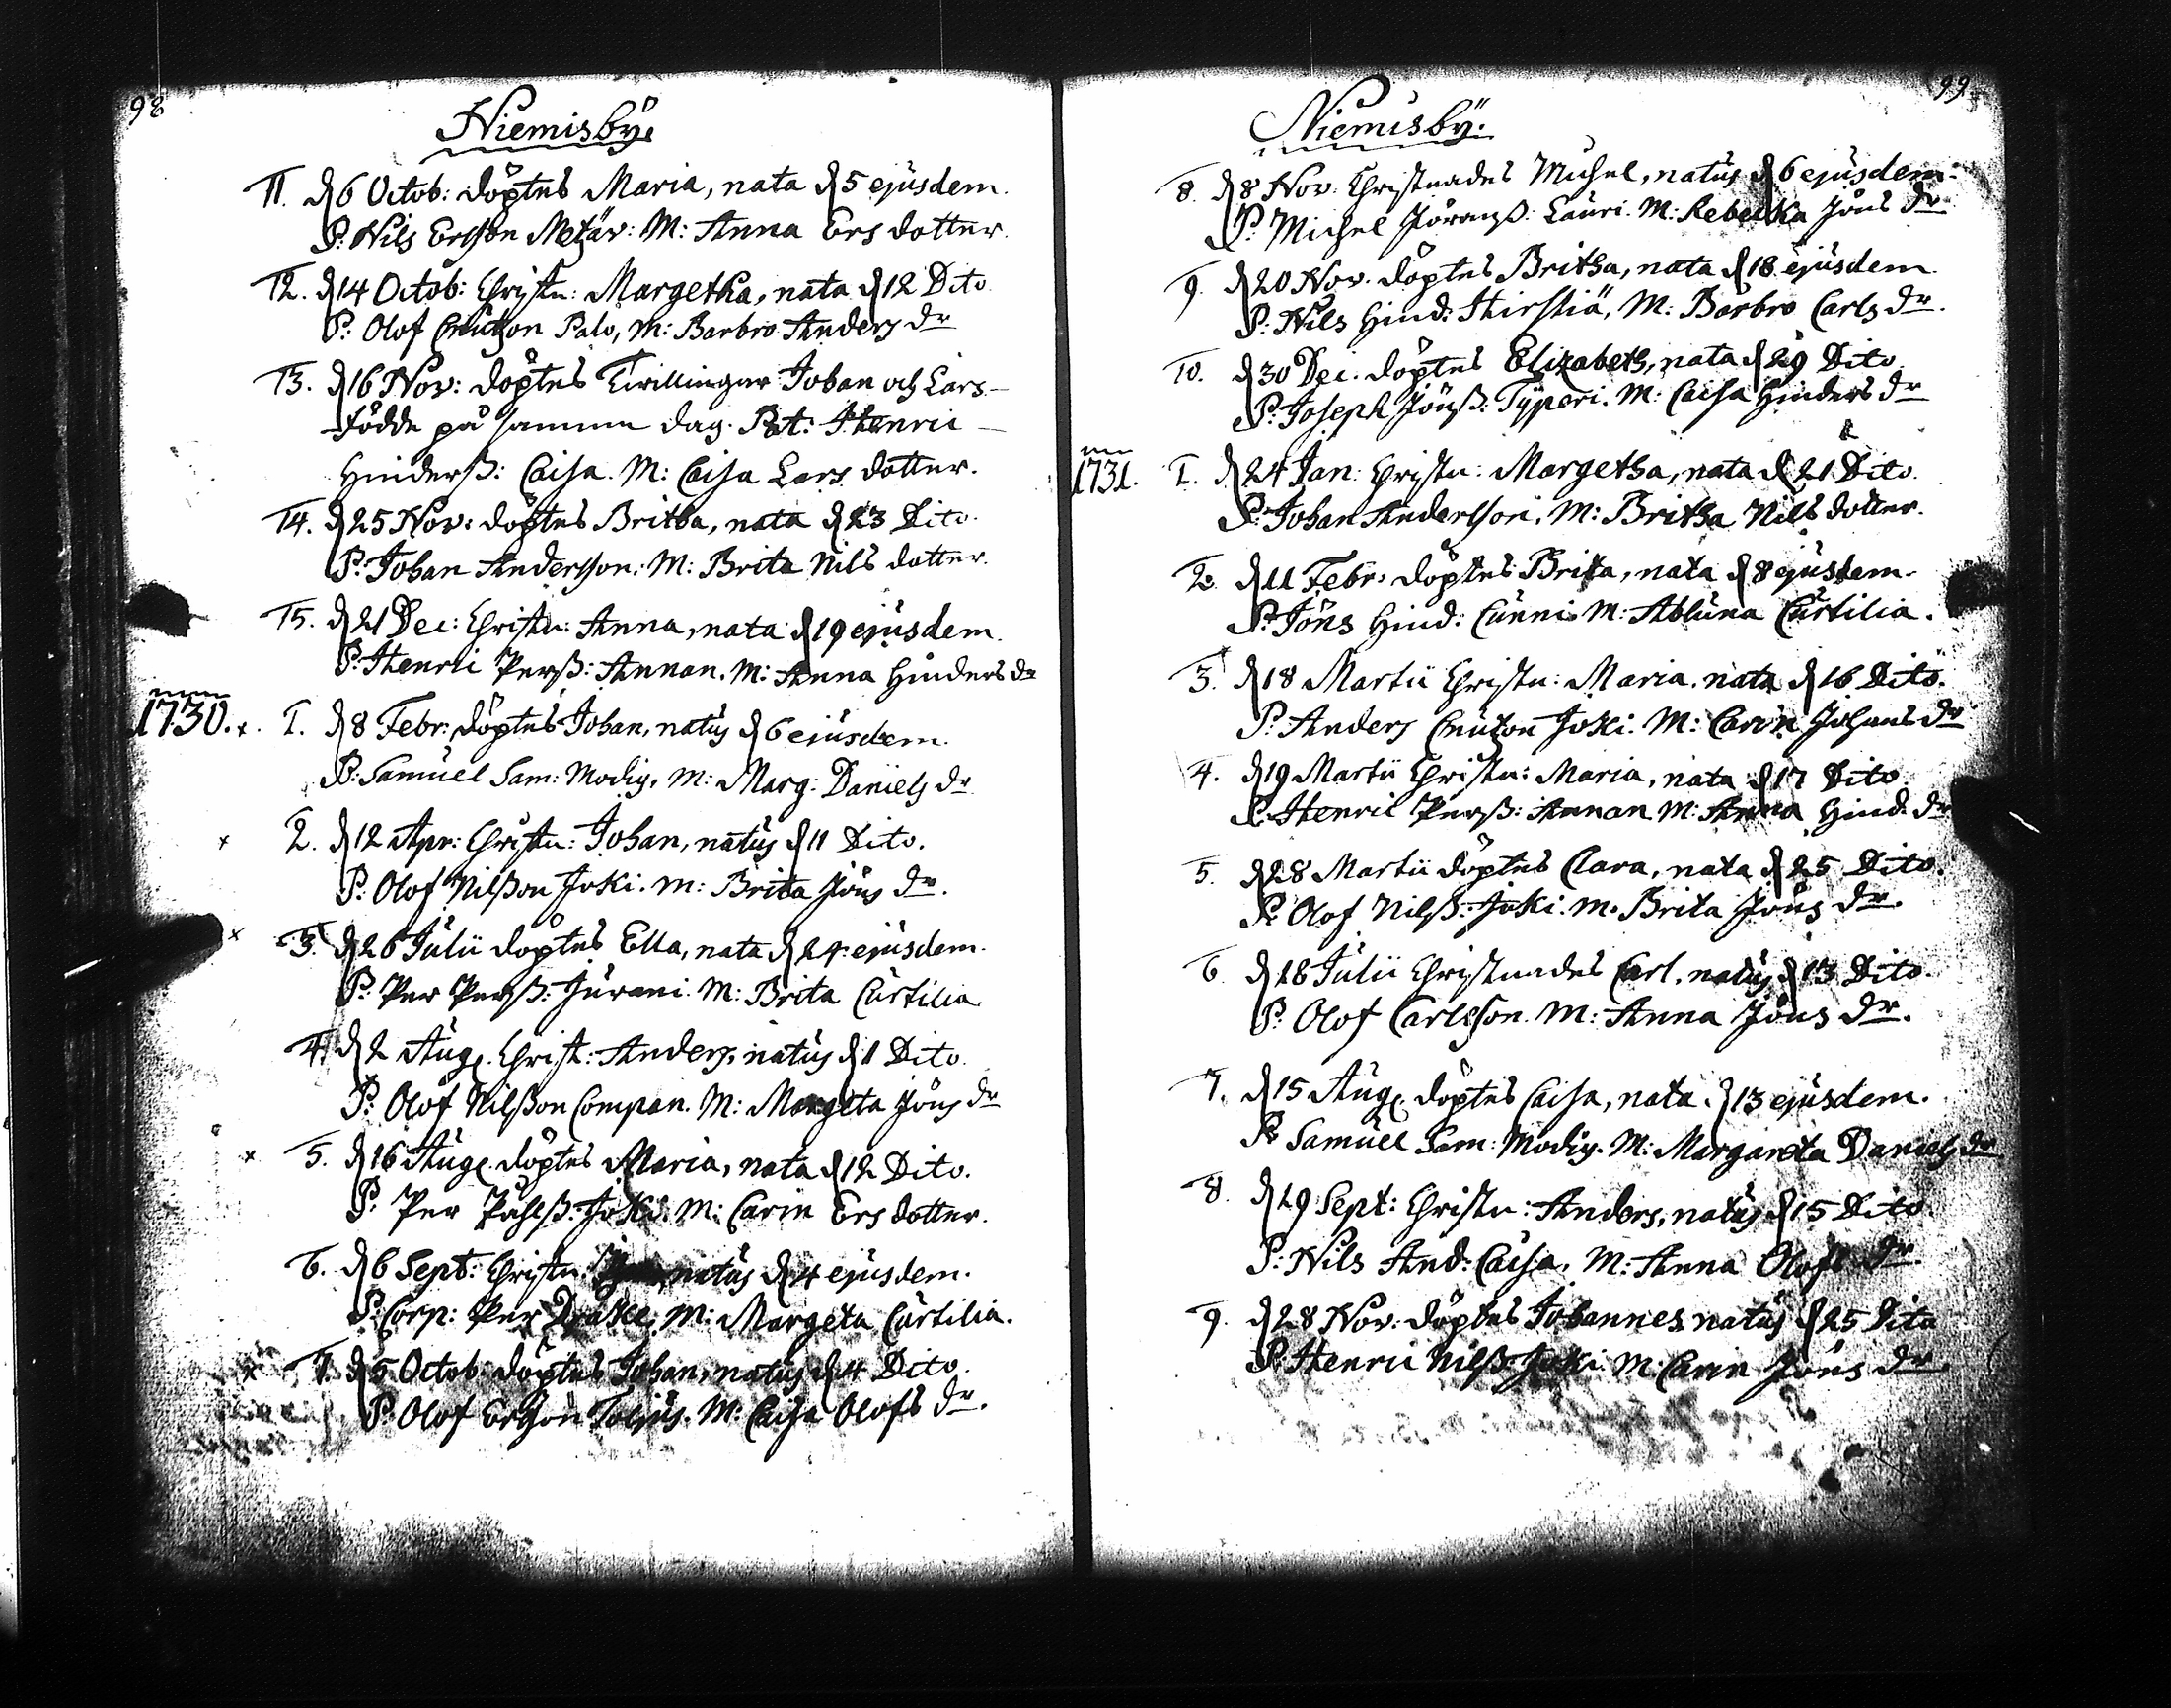 98
Niemisbÿ.
11. d 6 Octob: döptes Maria, nata d 5 ejusdem.
P: Nils Ersson Metäv: M: Anna Ers dotter.
12. d 14 Octob: Christn: Margetha, nata d 12 Dito.
P: Olof Cnutzon Palo, M: Barbro Anders dr
13. d 16 Nov: döptes Twillingar Johan och Lars
födde på samma dag. Pat: Henric
Hinderß: Caisa. M: Caisa Lars dotter.
14. d 25 Nov: döptes Britha, nata d 23 Dito.
P: Johan Andersson: M: Brita Nils dotter.
15. d 21 Dec: Christn: Anna, nata d 19 ejusdem.
P: Henric Perß: Annan. M: Anna Hinders dr
1730. x. 1. d 8 Febr: döptes Johan, natus d 6 ejusdem.
P: Samuel Sam: Modig, M: Marg: Daniels dr
x 2. d 12 Apr: Christn: Johan, natus d 11 Dito.
P: Olof Nilßon Joki. M: Brita Jöns dr.
x 3. d 26 Julii döptes Ella, nata d 24 ejusdem.
P: Per Perß: Jurani. M: Brita Curtilia.
4. d 2 Aug. Christ: Anders, natus d 1 Dito.
P: Olof Nilßon Compan. M: Margeta Jöns dr
x 5. d 16 Aug. döptes Maria, nata d 12 Dito.
P: Per Påhlß: Joki. M: Carin Ers dotter.
6. d 6 Sept: Christn: natus d 4 ejusdem.
P: Corp: Per M: Margeta Curtilia.
x 7. d 5 Octob: döptes Johan, natus d 4 Dito.
P: Olof Ersson M: Caisa Olofs dr.
99
Niemisbÿ.
8. d 8 Nov: Christnades Michel, natus d 6 ejusdem.
P: Michel Jöranß: Lauri. M: Rebecka Jöns dr
9. d 20 Nov. döptes Britha, nata d 18 ejusdem.
P: Nils Hind: Hirstiä, M: Barbro Carls dr.
10. d 30 Dec. döptes Elizabeth, nata d 29 Dito.
P: Joseph Jönß: Typeri. M: Caisa Hinders dr
1731. 1. d 24 Jan: Christn: Margetha, nata d 21 Dito.
P: Johan Andersson, M: Britha Nils dotter.
2. d 11 Febr: döptes Brita, nata d 8 ejusdem.
P: Jöns Hind: Cunni. M: Abluna Curtilia.
3. d 18 Martii Christn: Maria, nata d 16 Dito.
P: Anders Cnutzon Joki. M: Carin Johans dr
4. d 19 Martii Christn: Maria, nata d 17 Dito.
P: Henric Perß: Annan M: Anna Hind: dr
5. d 28 Martii döptes Clara, nata d 25 Dito.
P: Olof Nilß: Joki. M. Brita Jöns dr.
6. d 18 Julii Christnades Carl, natus d 13 Dito.
P: Olof Carlsson. M: Anna Jöns dr.
7. d 15 Aug. döptes Caisa, nata d 13 ejusdem.
P: Samuel Sam: Modig. M: Margareta Daniels dr
8. d 19 Sept: Christn: Anders, natus d 15 Dito.
P: Nils And: Caisa, M: Anna Olofs dr.
9. d 28 Nov: döptes Johannes natus d 25 Dito
P: Henric Nilß: Joki M: Carin Jöns dr.